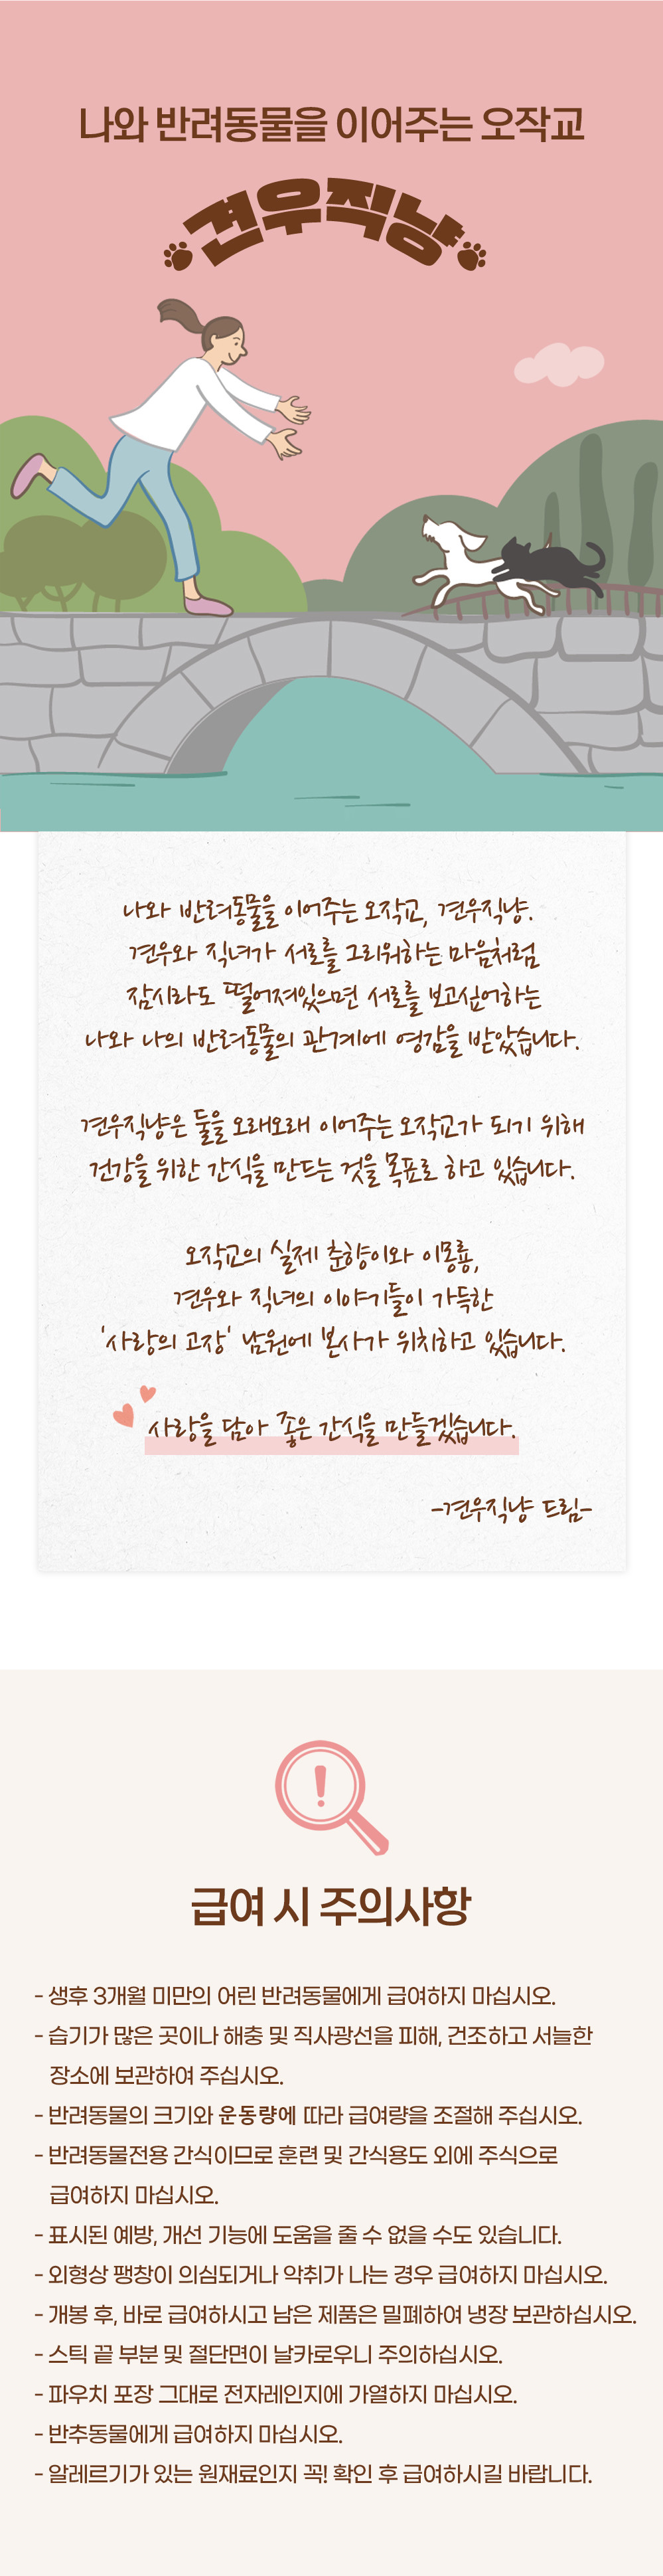 나와 반려동물을 이어주는 오작교
견우직냥
나와 반려동물을 이어주는 오작교, 견우직냥.
견우와 직녀가 서로를 그리워하는 마음처럼
잠시라도 떨어져있으면 서로를 보고싶어하는
나와 나의 반려동물의 관계에 영감을 받았습니다.
견우직냥은 둘을 오래오래 이어주는 오작교가 되기 위해
건강을 위한 간식을 만드는 것을 목표로 하고 있습니다.
오작교의 실제 춘향이와 이몽룡,
견우와 직녀의 이야기들이 가득한
'사랑의 고장' 남원에 본사가 위치하고 있습니다.
사랑을 담아 좋은 간식을 만들겠습니다.
-견우직냥 드림-
급여 시 주의사항
- 생후 3개월 미만의 어린 반려동물에게 급여하지 마십시오.
- 습기가 많은 곳이나 해충 및 직사광선을 피해, 건조하고 서늘한
장소에 보관하여 주십시오.
- 반려동물의 크기와 운동량에 따라 급여량을 조절해 주십시오.
- 반려동물전용 간식이므로 훈련 및 간식용도 외에 주식으로
급여하지 마십시오.
- 표시된 예방, 개선 기능에 도움을 줄 수 없을 수도 있습니다.
- 외형상 팽창이 의심되거나 악취가 나는 경우 급여하지 마십시오.
- 개봉 후, 바로 급여하시고 남은 제품은 밀폐하여 냉장 보관하십시오.
- 스틱 끝 부분 및 절단면이 날카로우니 주의하십시오.
- 파우치 포장 그대로 전자레인지에 가열하지 마십시오.
- 반추동물에게 급여하지 마십시오.
- 알레르기가 있는 원재료인지 꼭! 확인 후 급여하시길 바랍니다.